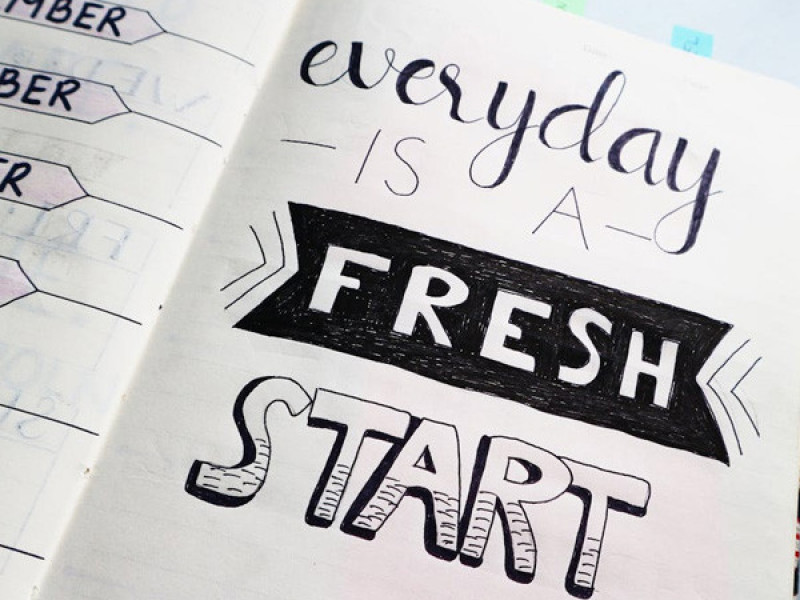 EMBER
BER
R
everyday
– IS A –
FRESH
START